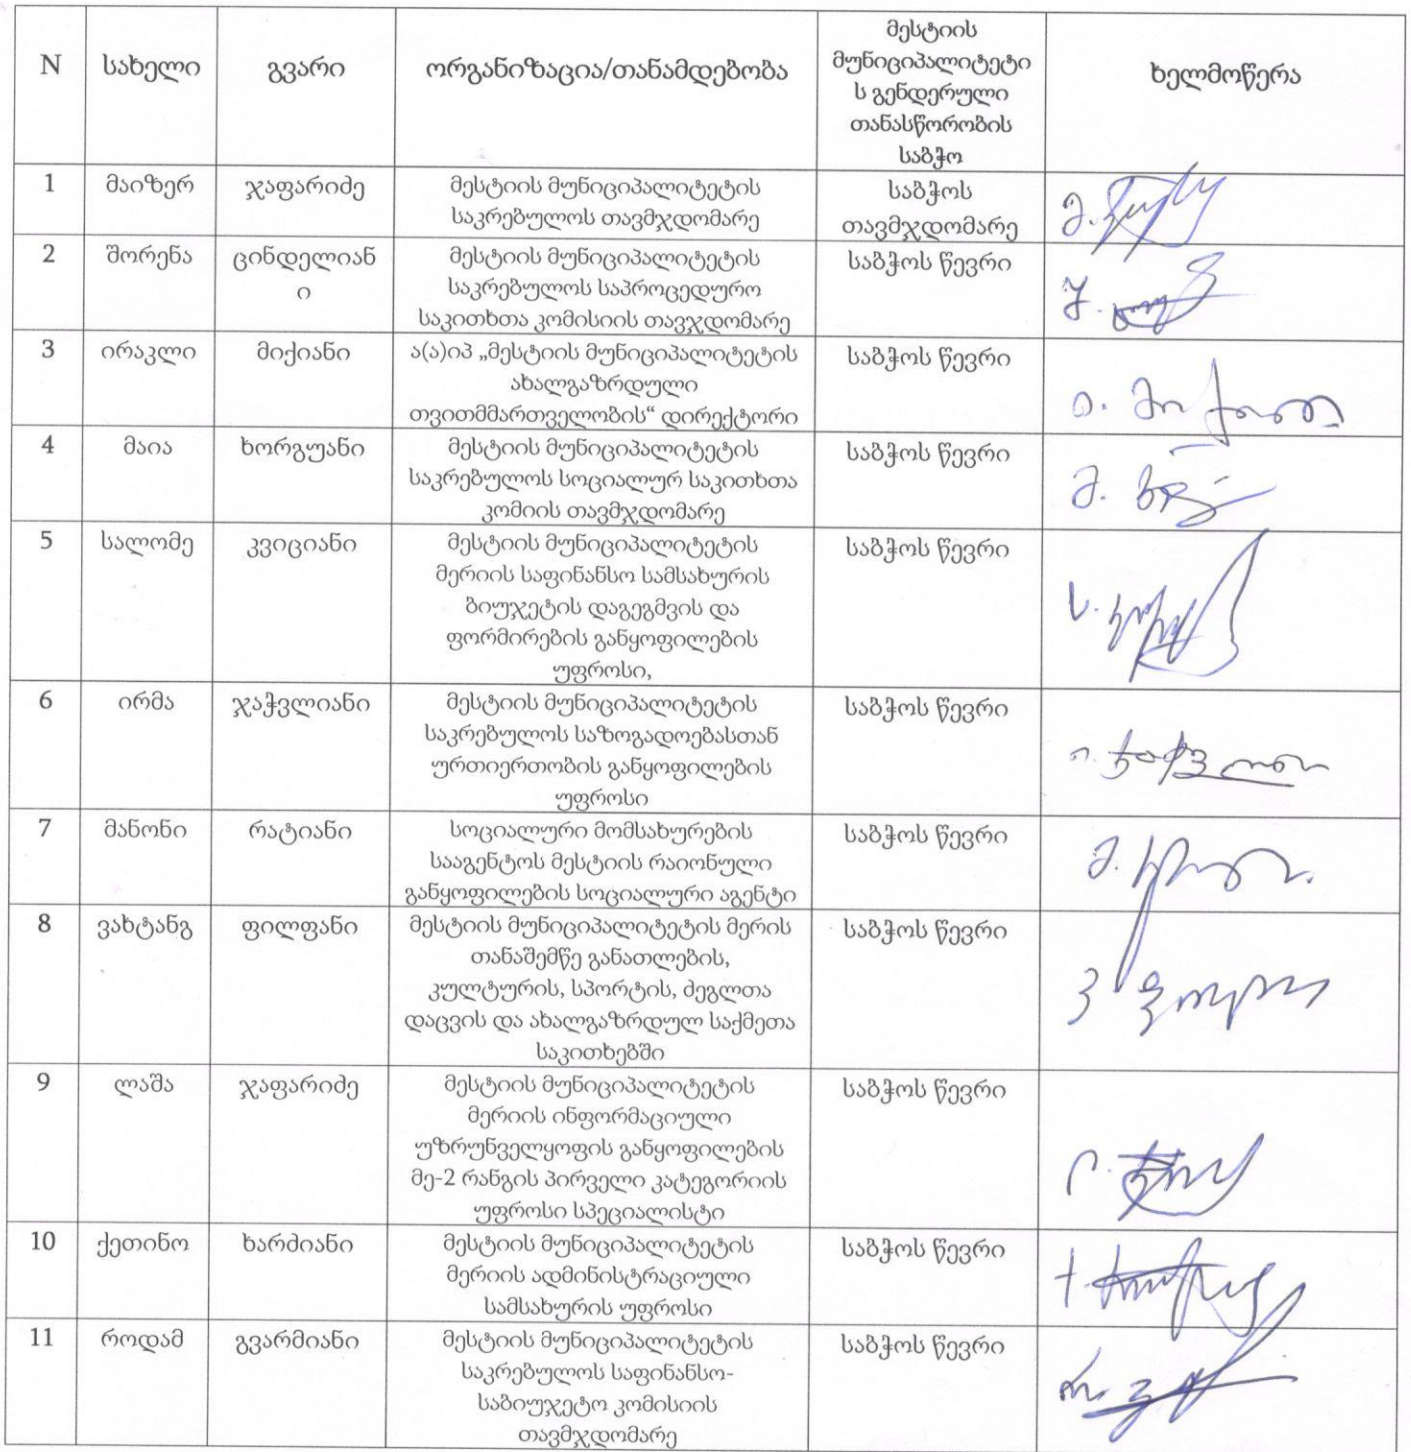 N სახელი გვარი ორგანიზაცია/თანამდებობა მესტიის
მუნიციპალიტეტი
ს გენდერული
თანასწორობის
საბჭო ხელმოწერა
1 მაიზერ ჯაფარიძე მესტიის მუნიციპალიტეტის
საკრებულოს თავმჯდომარე საბჭოს
თავმჯდომარე
2 შორენა ცინდელიან
ი მესტიის მუნიციპალიტეტის
საკრებულოს საპროცედურო
საკითხთა კომისიის თავჯდომარე საბჭოს წევრი
3 ირაკლი მიქიანი ა(ა)იპ „მესტიის მუნიციპალიტეტის
ახალგაზრდული
თვითმმართველობის“ დირექტორი საბჭოს წევრი
4 მაია ხორგუანი მესტიის მუნიციპალიტეტის
საკრებულოს სოციალურ საკითხთა
კომიის თავმჯდომარე საბჭოს წევრი
5 სალომე კვიციანი მესტიის მუნიციპალიტეტის
მერიის საფინანსო სამსახურის
ბიუჯეტის დაგეგმვის და
ფორმირების განყოფილების
უფროსი, საბჭოს წევრი
6 ირმა ჯაჭვლიანი მესტიის მუნიციპალიტეტის
საკრებულოს საზოგადოებასთან
ურთიერთობის განყოფილების
უფროსი საბჭოს წევრი
7 მანონი რატიანი სოციალური მომსახურების
სააგენტოს მესტიის რაიონული
განყოფილების სოციალური აგენტი საბჭოს წევრი
8 ვახტანგ ფილფანი მესტიის მუნიციპალიტეტის მერის
თანაშემწე განათლების,
კულტურის, სპორტის, ძეგლთა
დაცვის და ახალგაზრდულ საქმეთა
საკითხებში საბჭოს წევრი
9 ლაშა ჯაფარიძე მესტიის მუნიციპალიტეტის
მერიის ინფორმაციული
უზრუნველყოფის განყოფილების
მე-2 რანგის პირველი კატეგორიის
უფროსი სპეციალისტი საბჭოს წევრი
10 ქეთინო ხარძიანი მესტიის მუნიციპალიტეტის
მერიის ადმინისტრაციული
სამსახურის უფროსი საბჭოს წევრი
11 როდამ გვარმიანი მესტიის მუნიციპალიტეტის
საკრებულოს საფინანსო-
საბიუჯეტო კომისიის
თავმჯდომარე საბჭოს წევრი